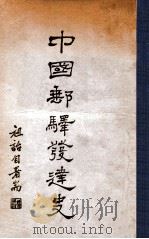 中國郵驛發達史
祖詒自署耑